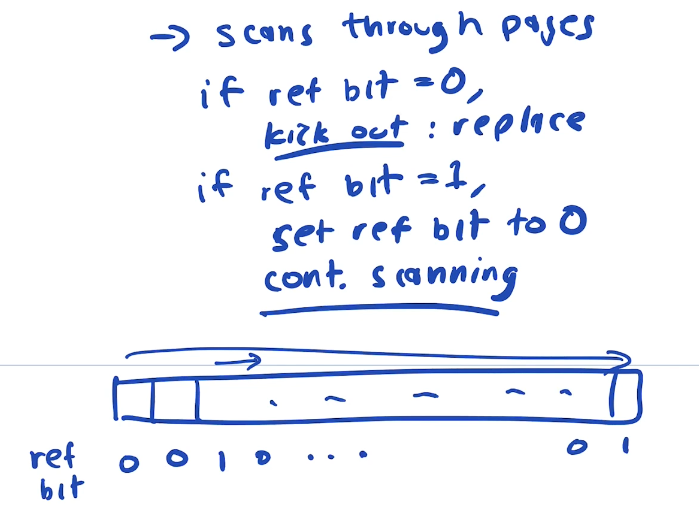 → scans through pages
if ref bit = 0,
kick out : replace
if ref bit = 1,
set ref bit to 0
cont. scanning
ref bit 0 0 1 0 ... 0 1